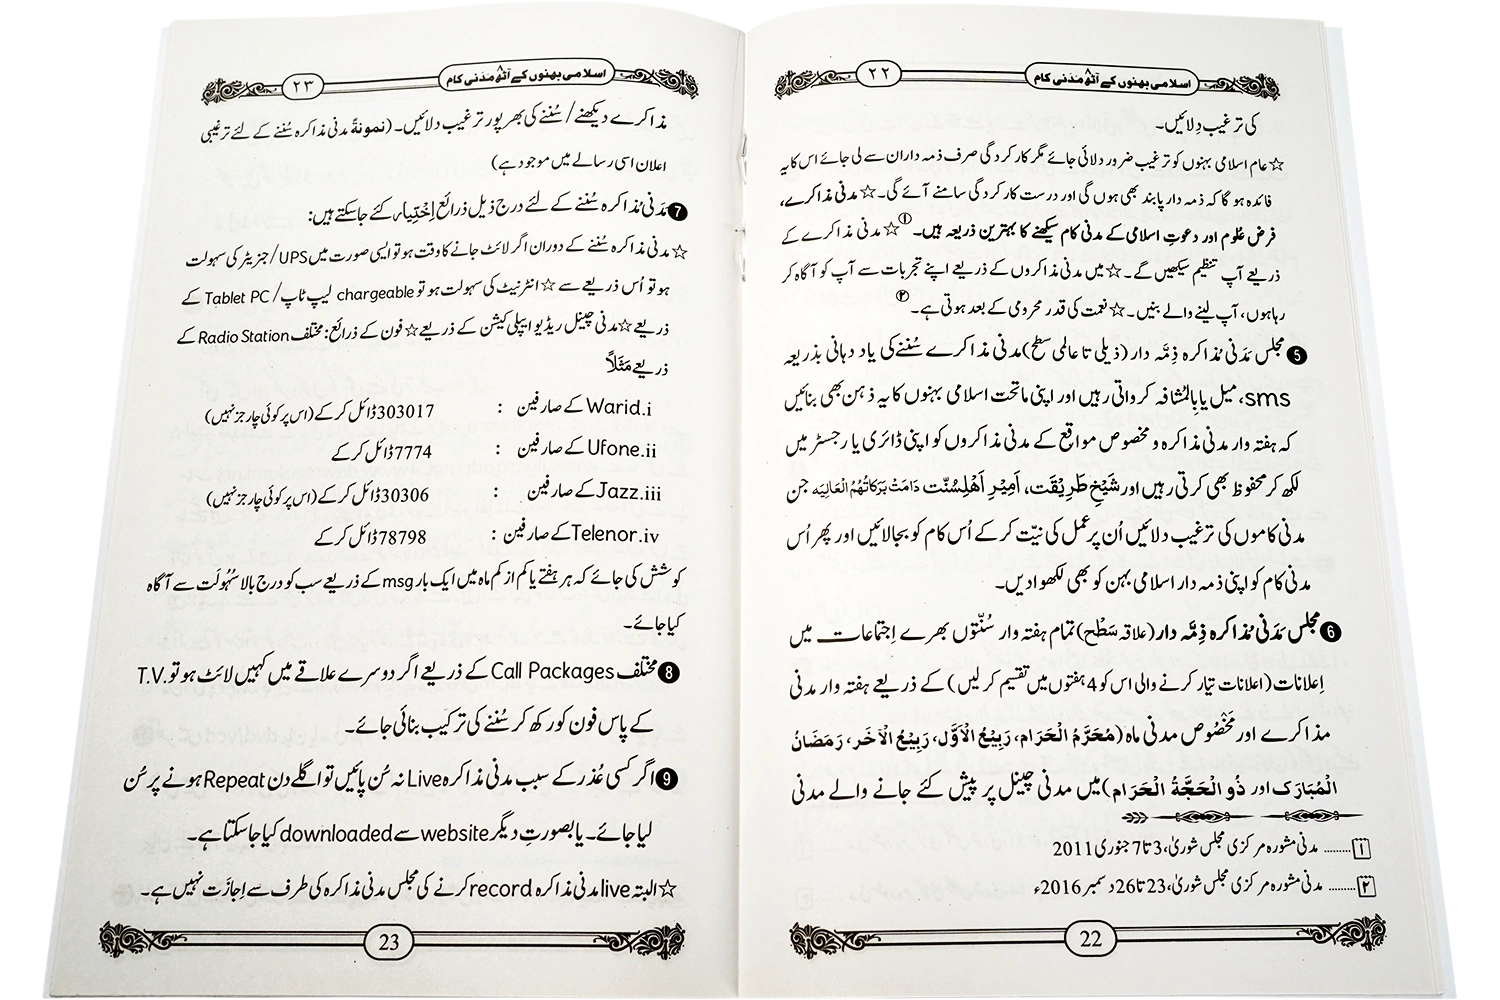 اسلامی بہنوں کے آٹھ مَدَنی کام
٢٢
کی ترغیب دِلائیں۔
☆عام اسلامی بہنوں کو ترغیب ضرور دلائی جائے مگر کارکردگی صرف ذمہ داران سے لی جائے اس کا یہ
فائدہ ہو گا کہ ذمہ دار پابند بھی ہوں گی اور درست کارکردگی سامنے آئے گی۔☆ مدنی مذاکرے،
فرض عُلوم اور دعوتِ اسلامی کے مدنی کام سیکھنے کا بہترین ذریعہ ہیں۔①☆مدنی مذاکرے کے
ذریعے آپ تنظیم سیکھیں گے۔☆میں مدنی مذاکروں کے ذریعے اپنے تجربات سے آپ کو آگاہ کر
رہا ہوں، آپ لینے والے بنیں۔☆نعمت کی قدر محرومی کے بعد ہوتی ہے۔②
❺ مجلس مَدَنی مُذاکرہ ذِمَّہ دار (ذیلی تا عالمی سطح) مدنی مذاکرے سُننے کی یاد دہانی بذریعہ
sms، میل یا بِالْمُشَافَہ کرواتی رہیں اور اپنی ماتحت اسلامی بہنوں کا یہ ذہن بھی بنائیں
کہ ہفتہ وار مدنی مذاکرہ و مخصوص مواقع کے مدنی مذاکروں کو اپنی ڈائری یا رجسٹر میں
لکھ کر محفوظ بھی کرتی رہیں اور شَیْخِ طَرِیْقَت، اَمِیْرِ اَھْلِسُنّت دَامَتْ بَرَکَاتُہُمُ الْعَالِیَہ جن
مدنی کاموں کی ترغیب دلائیں اُن پر عمل کی نیّت کر کے اُس کام کو بجا لائیں اور پھر اُس
مدنی کام کو اپنی ذمہ دار اسلامی بہن کو بھی لکھوا دیں۔
❻ مجلس مَدَنی مُذاکرہ ذِمَّہ دار (علاقہ سَطْح) تمام ہفتہ وار سُنّتوں بھرے اِجتماعات میں
اِعلانات (اعلانات تیار کرنے والی اس کو 4 ہفتوں میں تقسیم کر لیں) کے ذریعے ہفتہ وار مدنی
مذاکرے اور مَخْصُوص مدنی ماہ (مُحَرَّمُ الْحَرَام، رَبِیْعُ الْاَوَّل، رَبِیْعُ الْاٰخَر، رَمَضَانُ
الْمُبَارَک اور ذُوالْحَجَّةُ الْحَرَام) میں مدنی چینل پر پیش کئے جانے والے مدنی
١ ........ مدنی مشورہ مرکزی مجلس شوریٰ، 3 تا 7 جنوری 2011
٢ ........ مدنی مشورہ مرکزی مجلس شوریٰ، 23 تا 26 دسمبر 2016ء
22
اسلامی بہنوں کے آٹھ مَدَنی کام
٢٣
مذاکرے دیکھنے/ سُننے کی بھرپور ترغیب دلائیں۔ (نمونۃً مدنی مذاکرہ سُننے کے لئے ترغیبی
اعلان اسی رسالے میں موجود ہے)
❼ مَدَنی مُذاکرہ سُننے کے لئے درج ذیل ذرائع اِخْتِیار کئے جاسکتے ہیں:
☆مدنی مذاکرہ سُننے کے دوران اگر لائٹ جانے کا وقت ہو تو ایسی صورت میں UPS/جنریٹر کی سہولت
ہو تو اُس ذریعے سے ☆انٹرنیٹ کی سہولت ہو تو chargeable لیپ ٹاپ/ Tablet PC کے
ذریعے ☆مدنی چینل ریڈیو ایپلی کیشن کے ذریعے ☆فون کے ذرائع: مختلف Radio Station کے
ذریعے مَثَلاً
Warid.i کے صارفین : 303017 ڈائل کر کے (اس پر کوئی چارجز نہیں)
Ufone.ii کے صارفین : 7774 ڈائل کر کے
Jazz.iii کے صارفین : 30306 ڈائل کر کے (اس پر کوئی چارجز نہیں)
Telenor.iv کے صارفین : 78798 ڈائل کر کے
کوشش کی جائے کہ ہر ہفتے یا کم از کم ماہ میں ایک بار msg کے ذریعے سب کو درج بالا سُہُولَت سے آگاہ
کیا جائے۔
❽ مختلف Call Packages کے ذریعے اگر دوسرے علاقے میں کہیں لائٹ ہو تو T.V.
کے پاس فون کو رکھ کر سُننے کی ترکیب بنائی جائے۔
❾ اگر کسی عُذر کے سبب مدنی مذاکرہ Live نہ سُن پائیں تو اگلے دن Repeat ہونے پر سُن
لیا جائے۔ یا بصورتِ دیگر website سے downloaded کیا جاسکتا ہے۔
☆البتہ live مدنی مذاکرہ record کرنے کی مجلس مدنی مذاکرہ کی طرف سے اِجازَت نہیں ہے۔
23